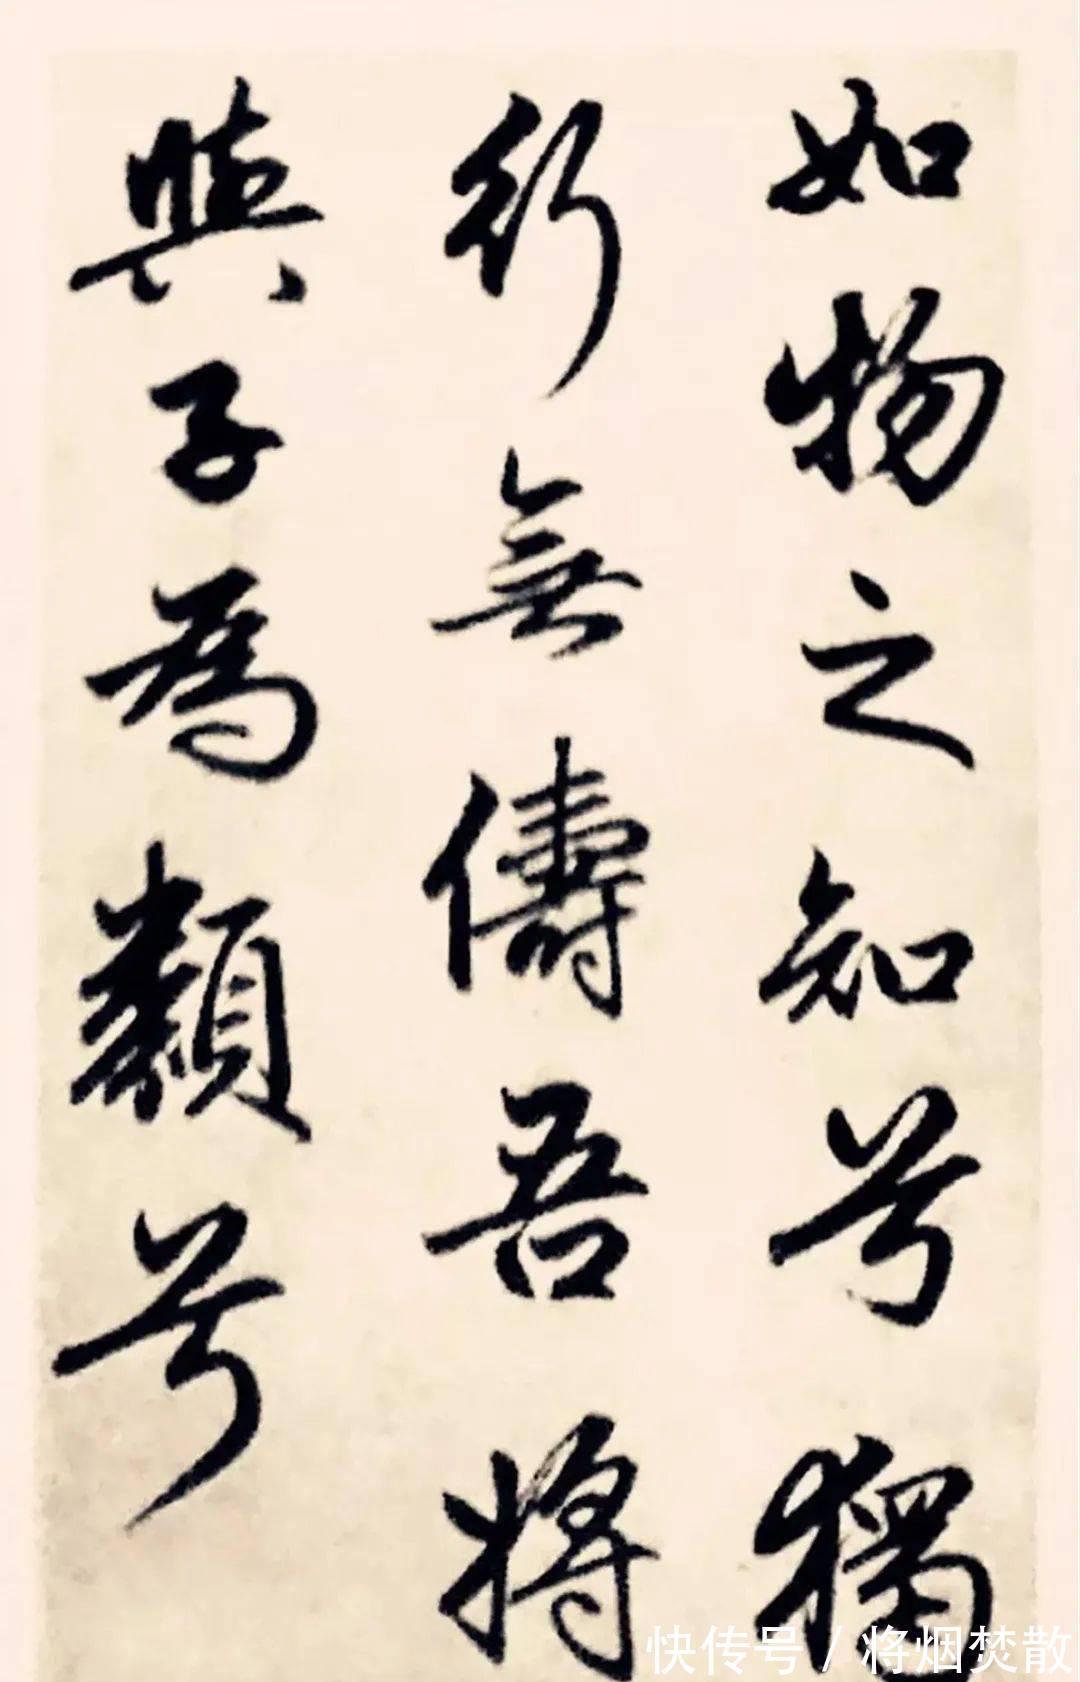 如物之知兮獨
行無儔吾將
與子為類兮
快传号/将烟焚散